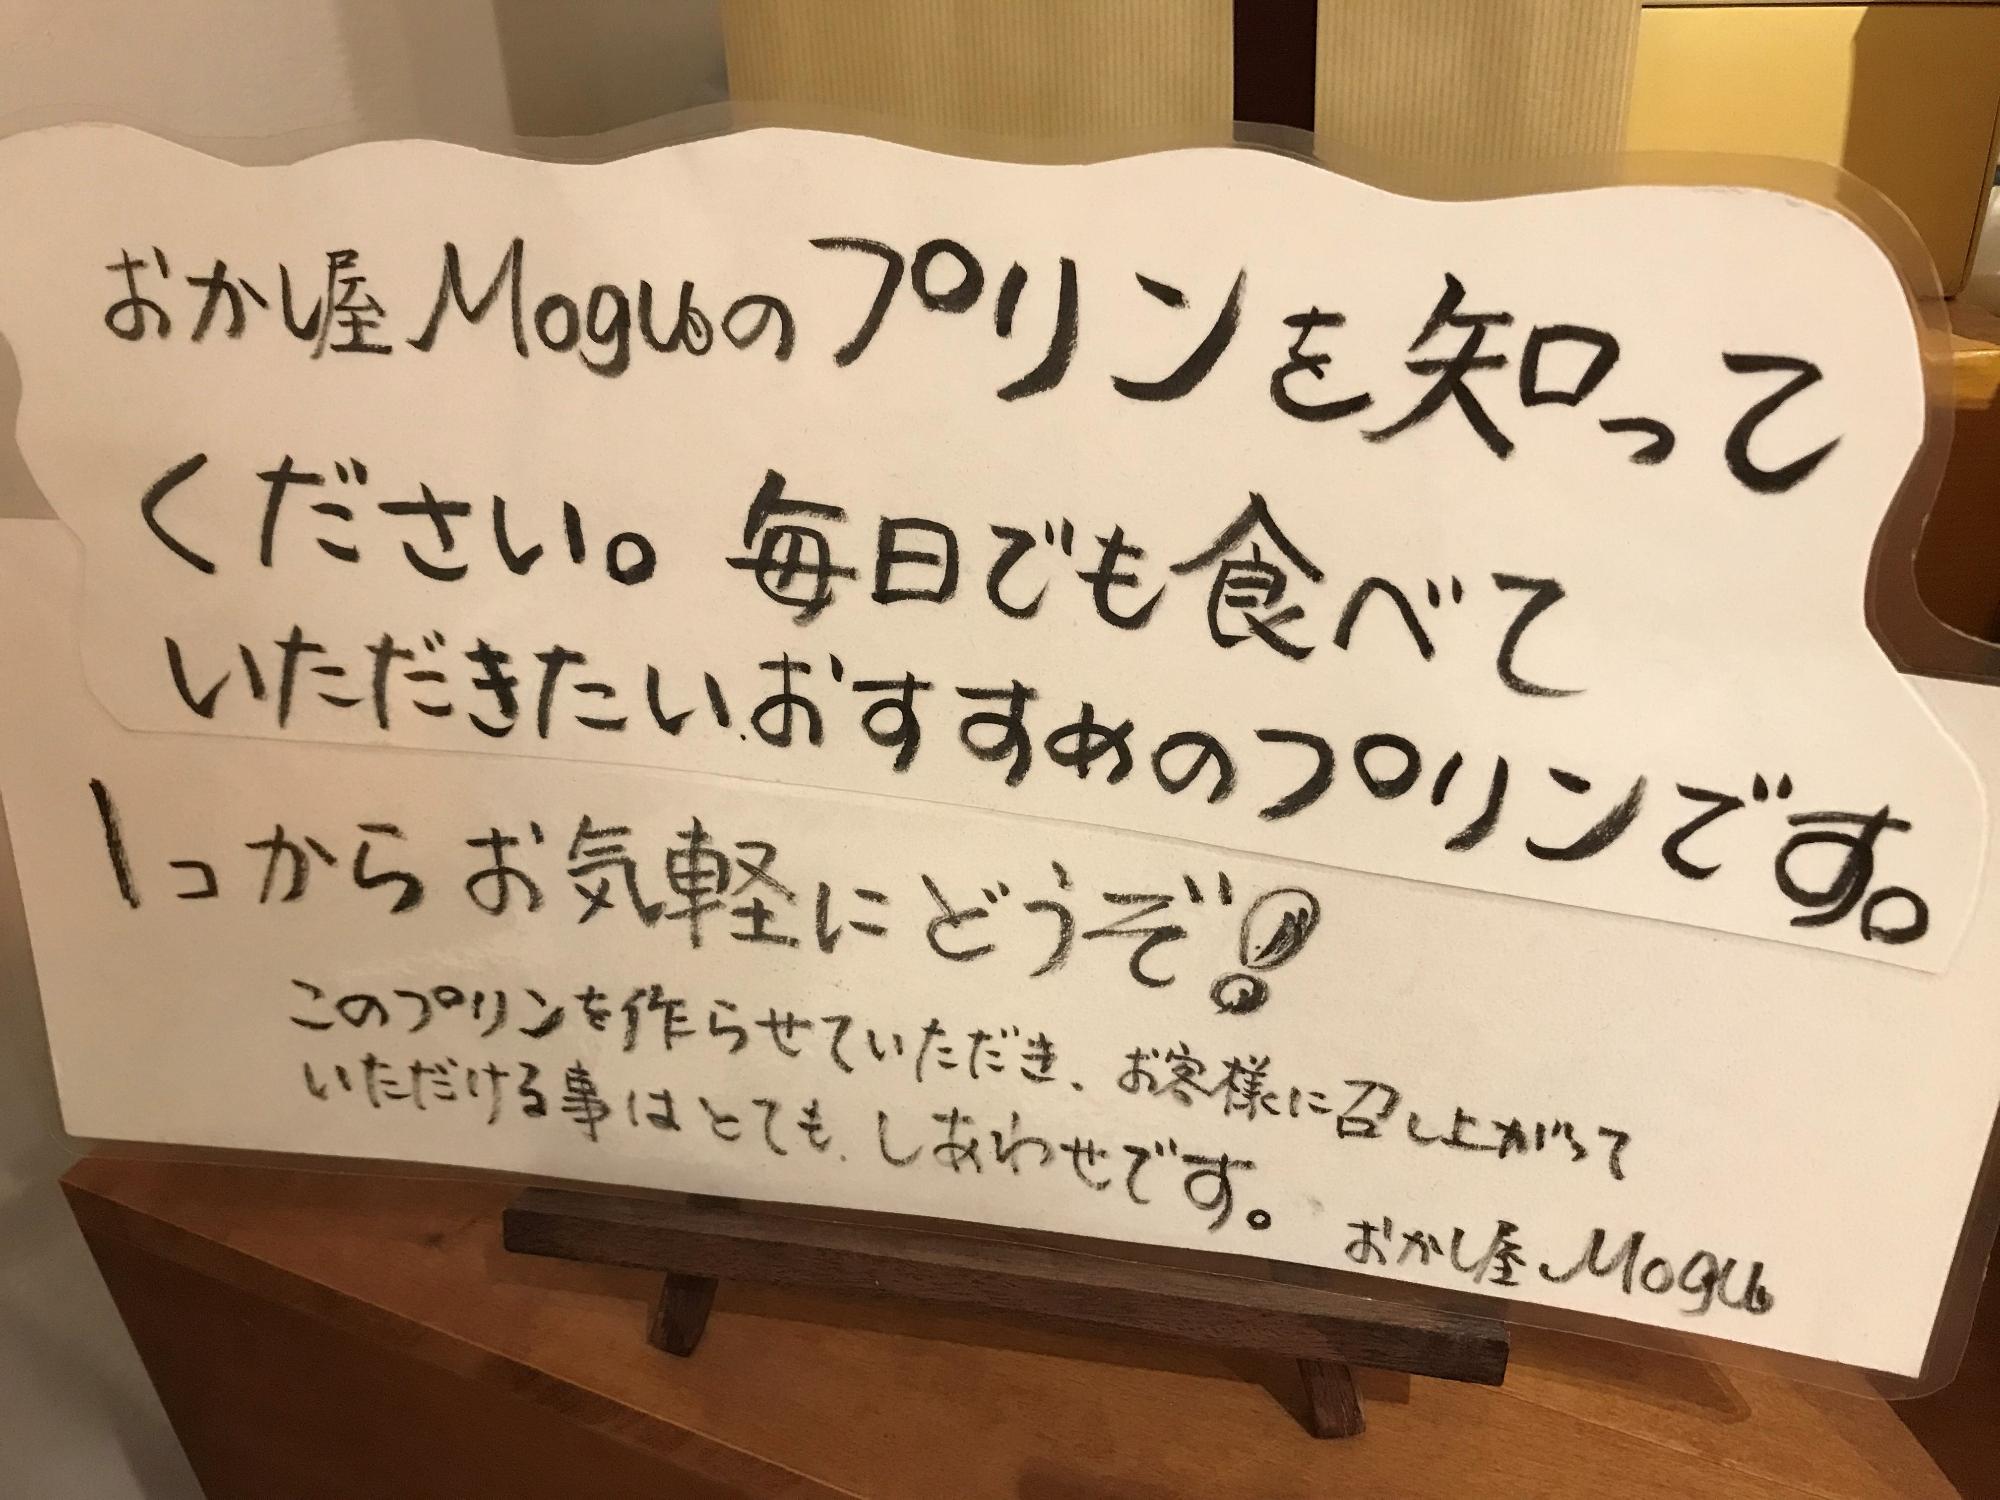 おかし屋Moguのプリンを知って
ください。毎日でも食べて
いただきたい.おすすめのプリンです。
1コからお気軽にどうぞ!
このプリンを作らせていただき、お客様に召し上がって
いただける事はとても、しあわせです。
おかし屋Mogu